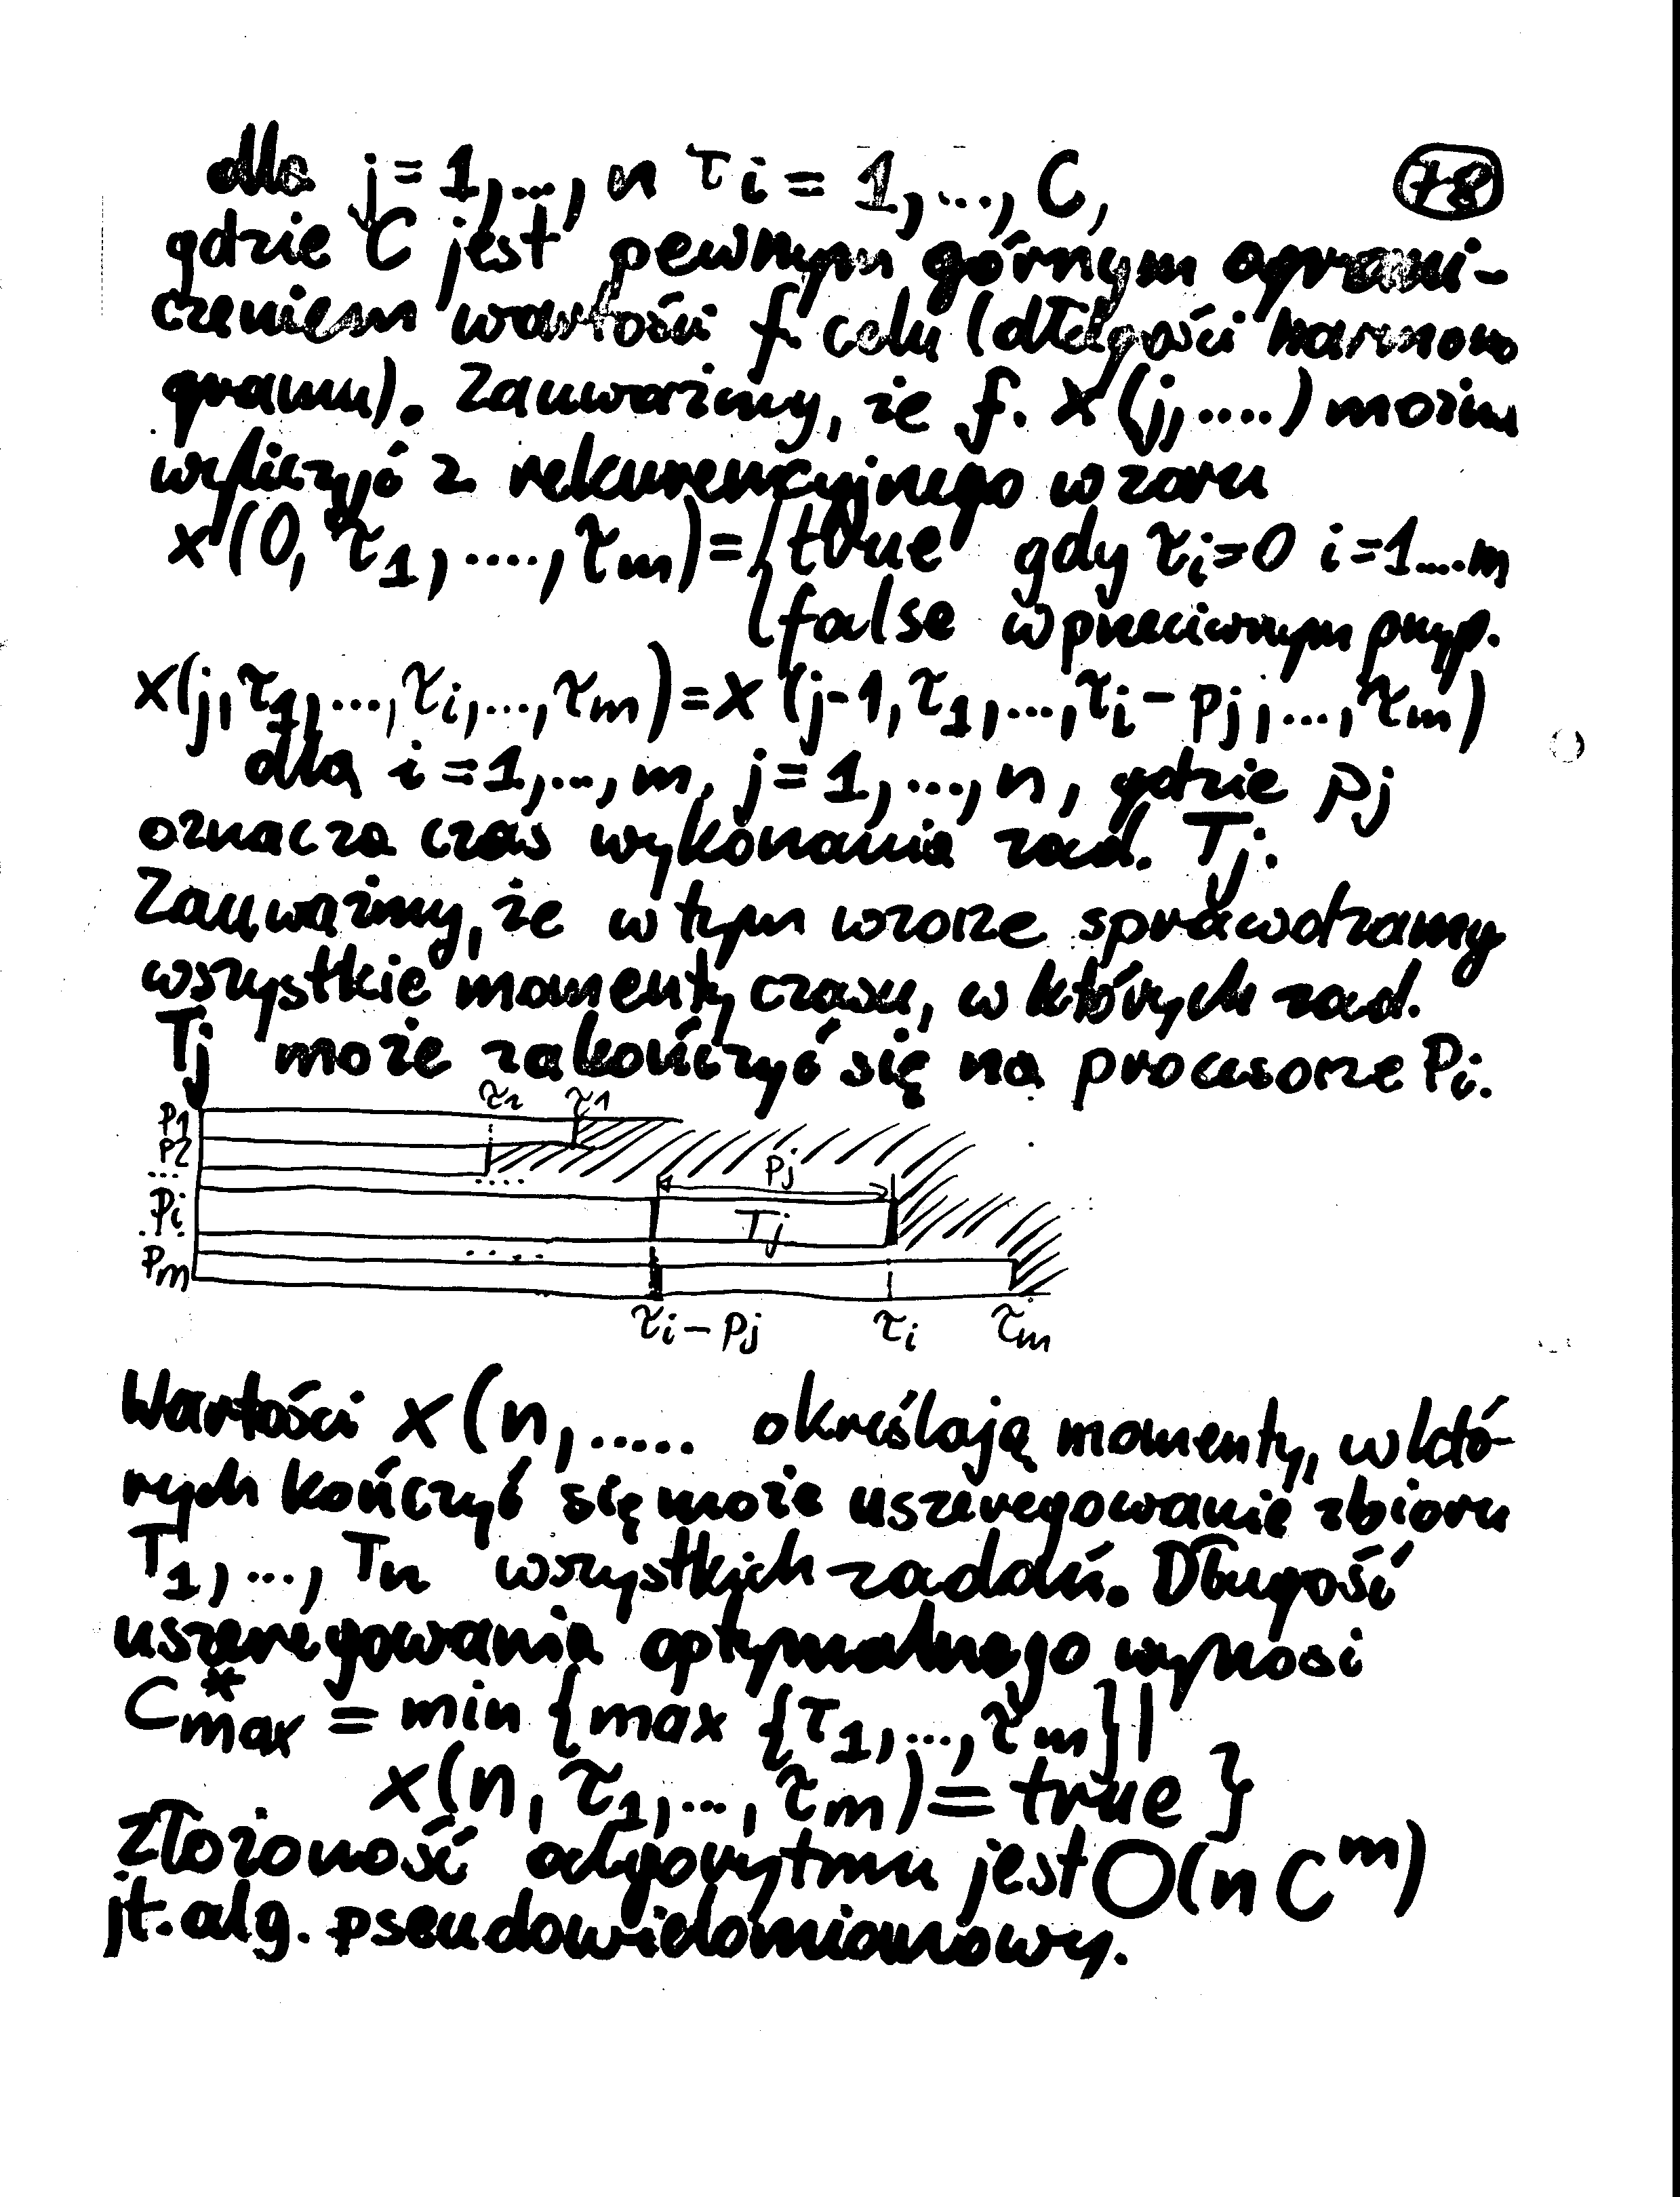 dla j = 1,..., n τi = 1,..., C,
78
gdzie C jest pewnym górnym ograni-
czeniem wartości f. celu (długości harmono
gramu). Zauważmy, że f. x(j,....) można
wyliczyć z rekurencyjnego wzoru
x(0, τ1,....,τm) = { true gdy τi=0 i=1....m
false w przeciwnym przyp.
x(j,τ1,...,τi,...,τm) = x(j-1,τ1,...,τi - pj,...,τm)
dla i=1,...,m, j=1,...,n, gdzie pj
oznacza czas wykonania zad. Tj.
Zauważmy, że w tym wzorze sprawdzamy
wszystkie momenty czasu, w których zad.
Tj może zakończyć się na procesorze Pi.
τ2 τ1
P1
P2
... .... pj
Pi Tj
... ....
Pm
τi - pj τi τm
Wartości x(n,..... określają momenty, w któ-
rych kończyć się może uszeregowanie zbioru
T1,..., Tn wszystkich zadań. Długość
uszeregowania optymalnego wynosi
C*max = min {max {τ1,...,τm}|
x(n, τ1,..., τm) = true }
Złożoność algorytmu jest O(n C^m)
jt. alg. pseudowielomianowy.